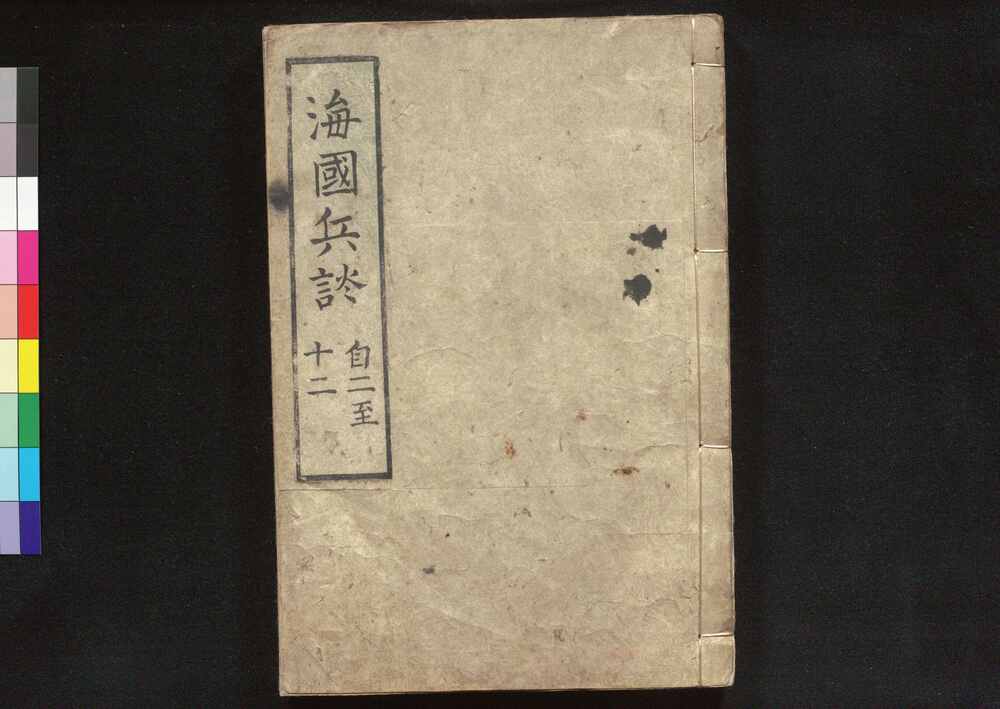 海國兵談
自二至
十二